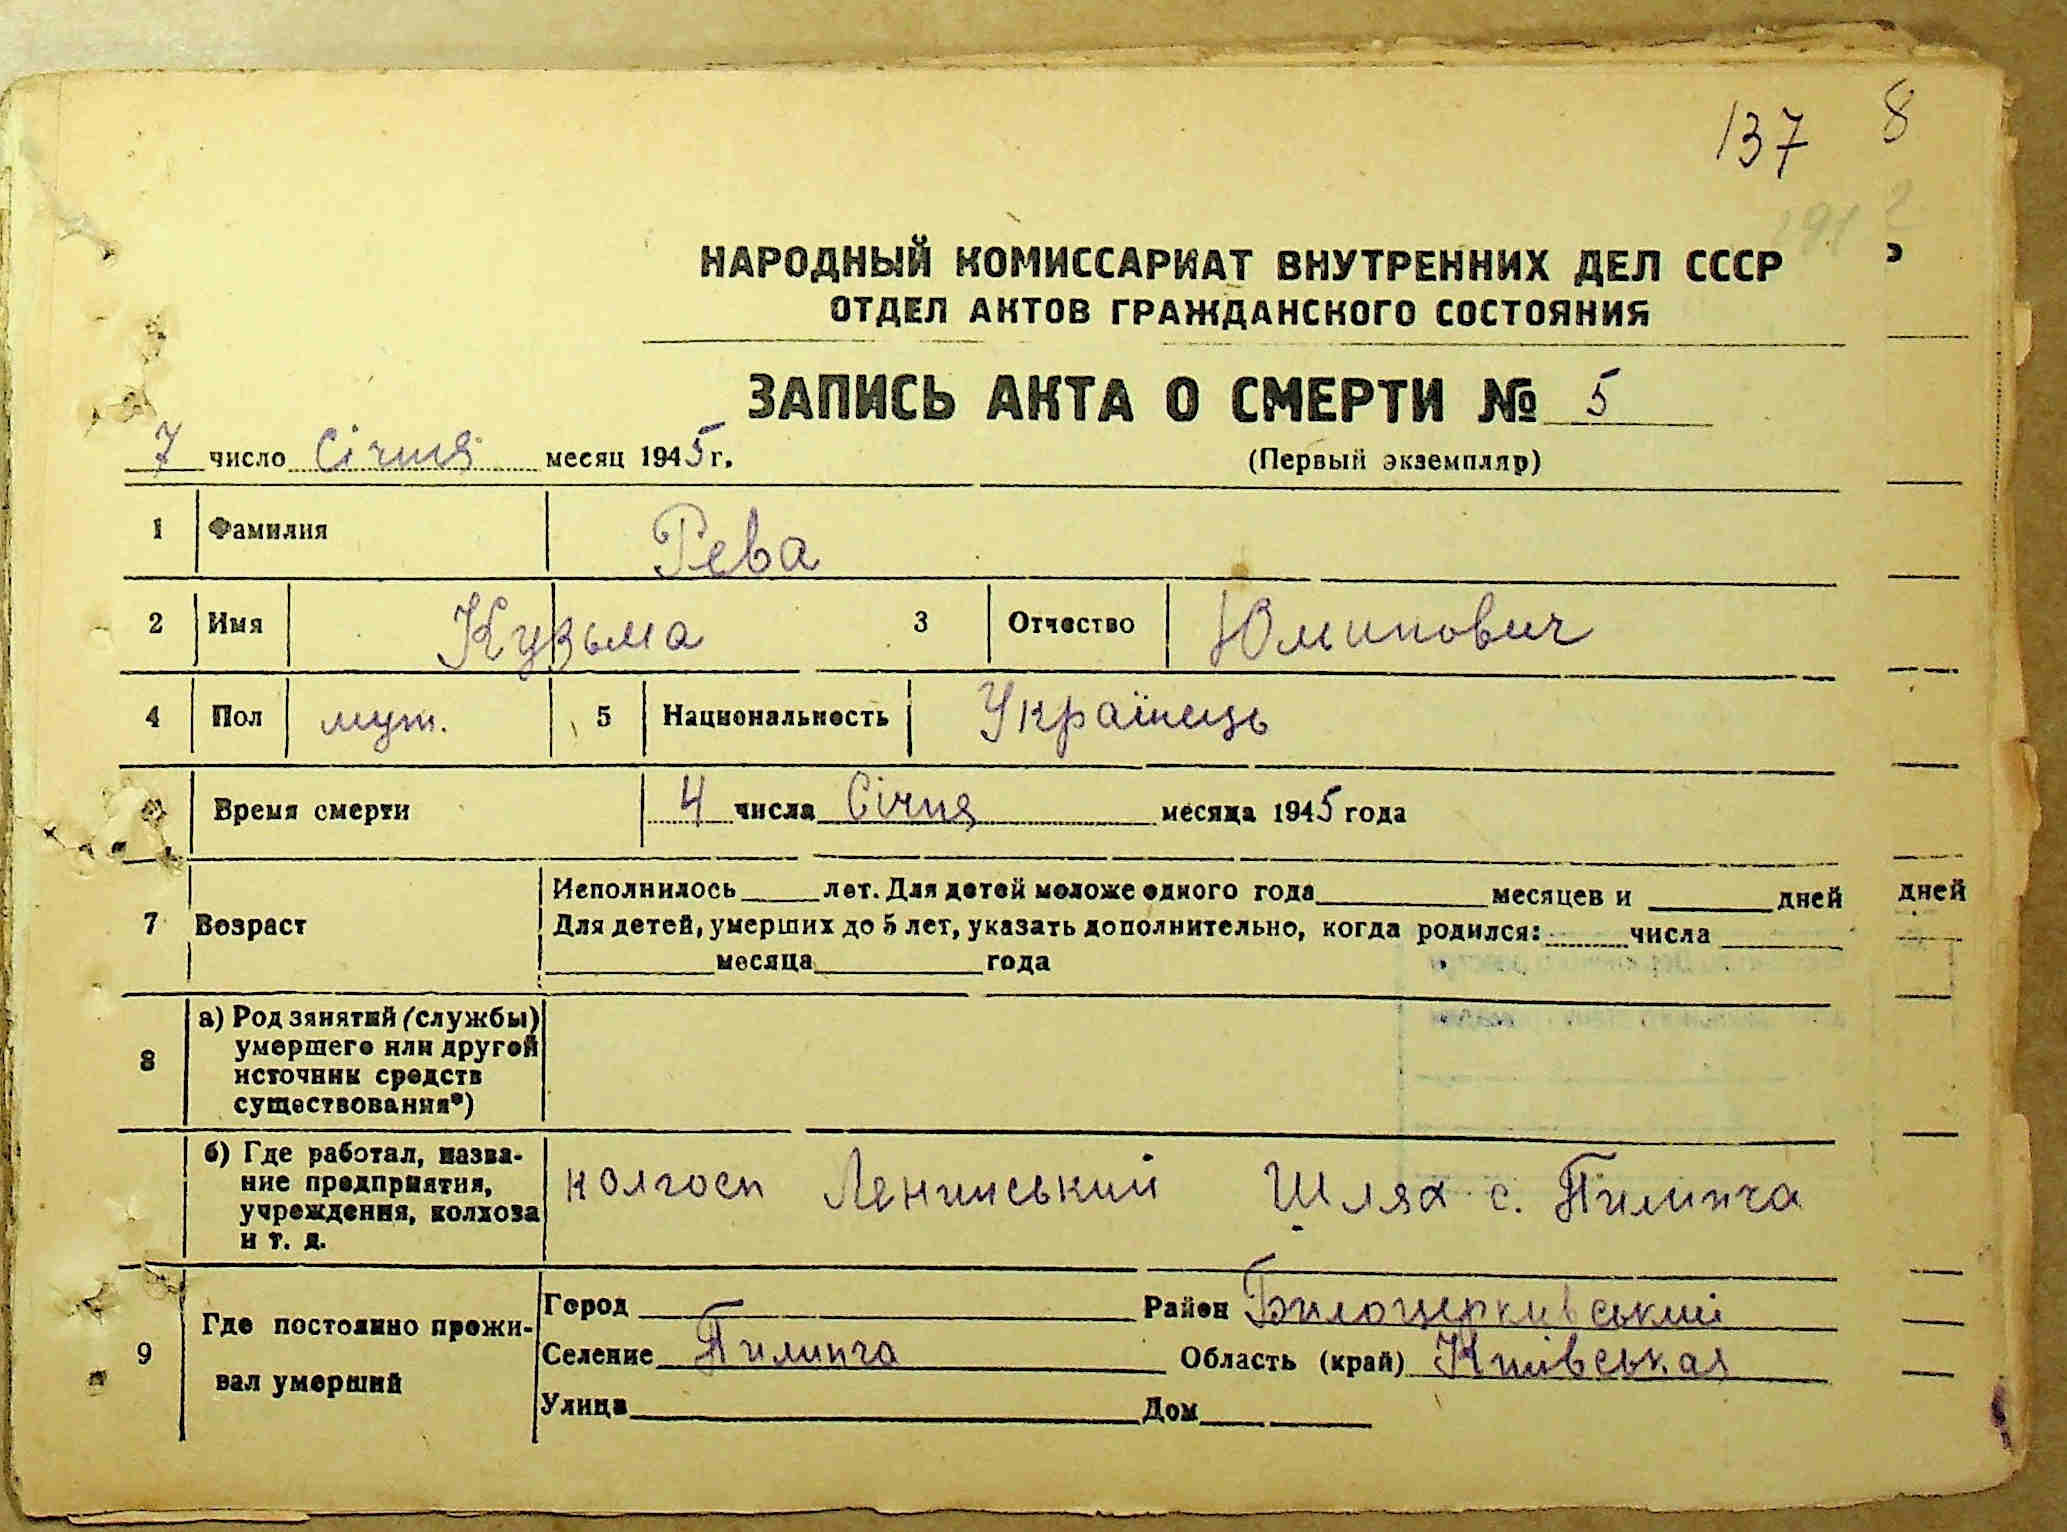 137 8
НАРОДНЫЙ КОМИССАРИАТ ВНУТРЕННИХ ДЕЛ СССР
ОТДЕЛ АКТОВ ГРАЖДАНСКОГО СОСТОЯНИЯ
ЗАПИСЬ АКТА О СМЕРТИ № 5
7 число Січня месяц 1945 г. (Первый экземпляр)
1 Фамилия Рева
2 Имя Кузьма 3 Отчество Юхимович
4 Пол муж. 5 Национальность Українець
Время смерти 4 числа Січня месяца 1945 года
Исполнилось лет. Для детей моложе одного года месяцев и дней дней
7 Возраст Для детей, умерших до 5 лет, указать дополнительно, когда родился: числа
месяца года
а) Род занятий (службы)
умершего или другой
8 источник средств
существования*)
б) Где работал, назва-
ние предприятия,
учреждения, колхоза
и т. д.
колгосп Ленинський Шлях с. Пилипча
9 Где постоянно прожи-
вал умерший
Город Район Билоцеркивський
Селение Пилипча Область (край) Київськая
Улица Дом